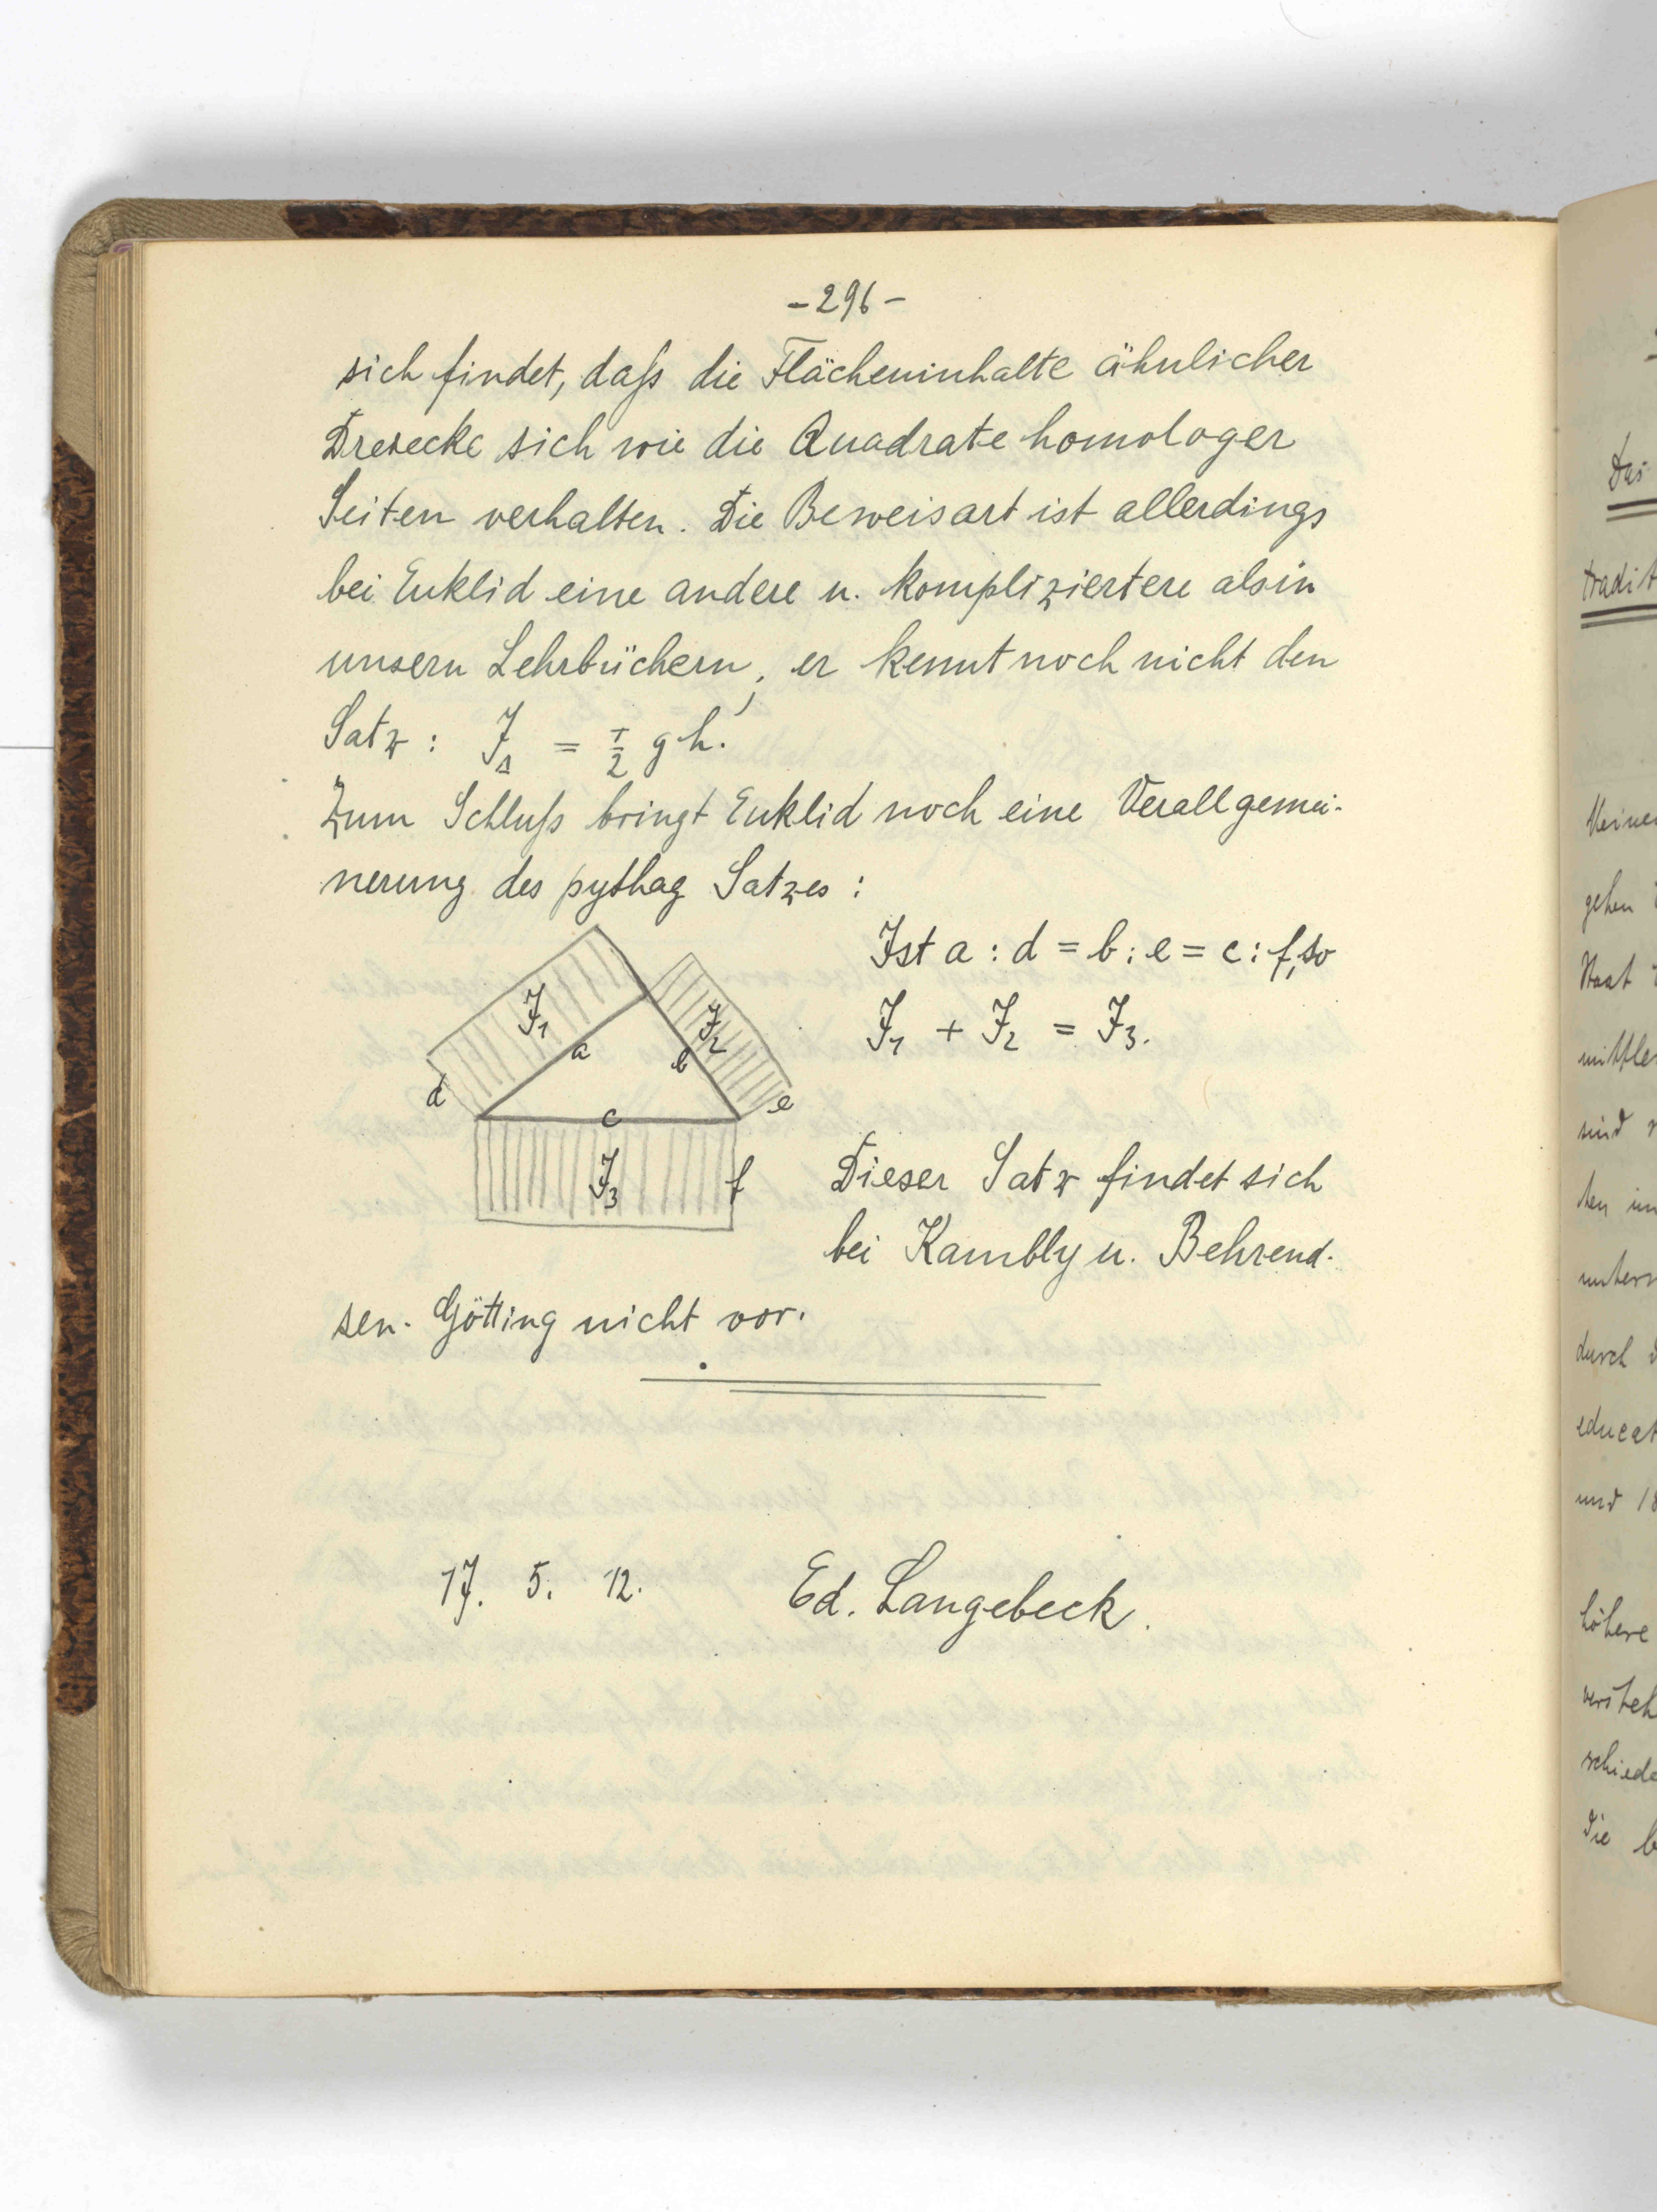 -296-
sich findet, daß die Flächeninhalte ähnlicher
Dreiecke sich wie die Quadrate homologer
Seiten verhalten. Die Beweisart ist allerdings
bei Euklid eine andere u. kompliziertere als in
unsern Lehrbüchern; er kennt noch nicht den
Satz: J△ = 1/2 g h.
Zum Schluß bringt Euklid noch eine Verallgemei-
nerung des pythag Satzes:
Ist a : d = b : e = c : f, so
J1 + J2 = J3.
J1
J2
a
b
d
e
c
J3
f
Dieser Satz findet sich
bei Kambly u. Behrend-
sen-Götting nicht vor.
17. 5. 12. Ed. Langebeck.
Das
tradit
Meine
gehen
Staat
mittle
sind
ten im
unter
durch d
educat
und 18
höhere
versteh
schiede
Die b